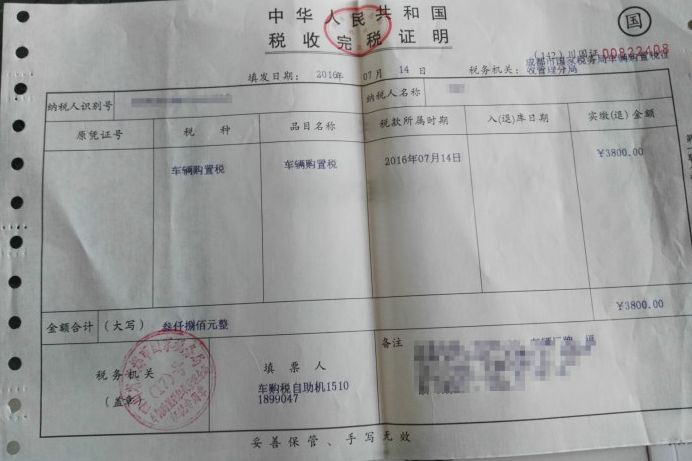 中华人民共和国
税收完税证明
国
(142)川国证 00822408
填发日期： 2016年 07月 14 日 税务机关： 成都市国家税务局车辆购置税征
收管理分局
纳税人识别号 纳税人名称
原凭证号 税 种 品目名称 税款所属时期 入(退)库日期 实缴(退)金额
车辆购置税 车辆购置税 2016年07月14日 ￥3800.00
￥3800.00
金额合计 (大写) 叁仟捌佰元整
税务机关
(盖章)
填票人
车购税自助机1510
1899047
备注
妥善保管、手写无效